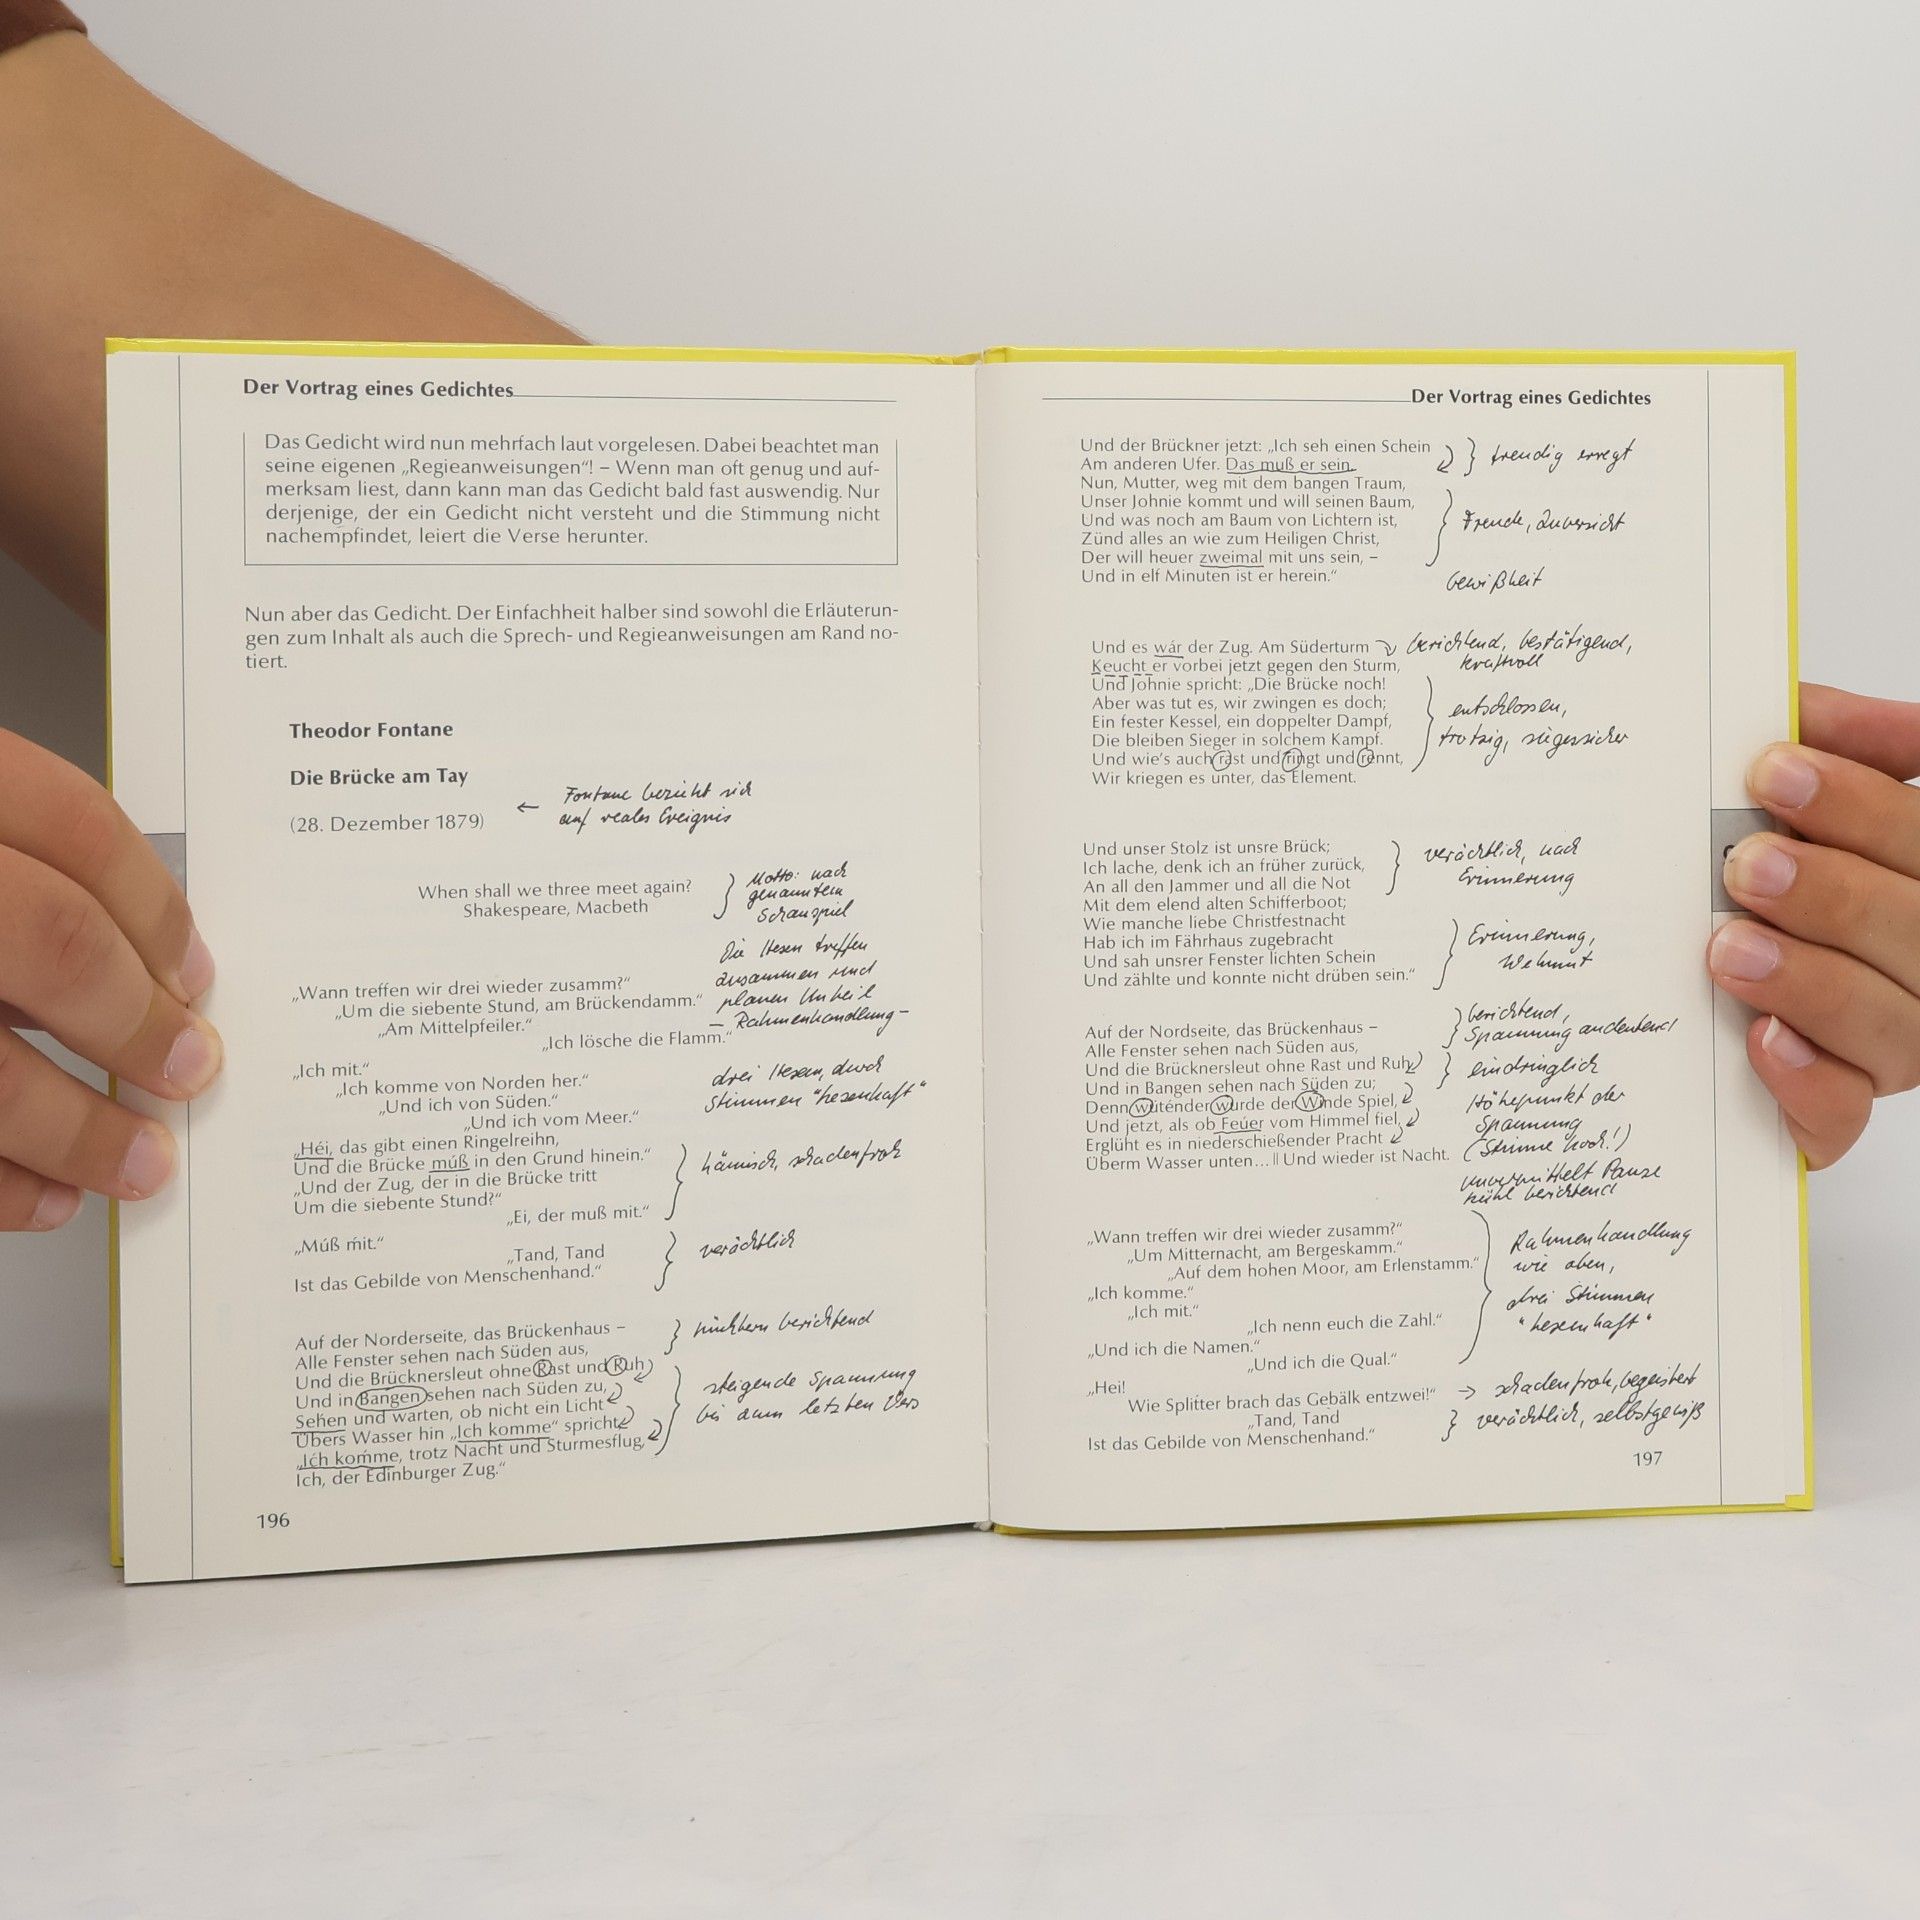 Der Vortrag eines Gedichtes
Das Gedicht wird nun mehrfach laut vorgelesen. Dabei beachtet man
seine eigenen „Regieanweisungen“! – Wenn man oft genug und auf-
merksam liest, dann kann man das Gedicht bald fast auswendig. Nur
derjenige, der ein Gedicht nicht versteht und die Stimmung nicht
nachempfindet, leiert die Verse herunter.
Nun aber das Gedicht. Der Einfachheit halber sind sowohl die Erläuterun-
gen zum Inhalt als auch die Sprech- und Regieanweisungen am Rand no-
tiert.
Theodor Fontane
Die Brücke am Tay
(28. Dezember 1879)
← Fontane bezieht sich
auf reales Ereignis
When shall we three meet again?
Shakespeare, Macbeth
Motto: nach
genanntem
Schauspiel
Die Hexen treffen
zusammen und
planen Unheil
– Rahmenhandlung –
„Wann treffen wir drei wieder zusamm?“
„Um die siebente Stund, am Brückendamm.“
„Am Mittelpfeiler.“
„Ich lösche die Flamm.“
„Ich mit.“
„Ich komme von Norden her.“
„Und ich von Süden.“
„Und ich vom Meer.“
drei Hexen, durch
Stimmen "hexenhaft"
„Héi, das gibt einen Ringelreihn,
Und die Brücke múß in den Grund hinein.“
„Und der Zug, der in die Brücke tritt
Um die siebente Stund?“
„Ei, der muß mit.“
hämisch, schadenfroh
„Múß ḿit.“
„Tand, Tand
Ist das Gebilde von Menschenhand.“
verächtlich
Auf der Norderseite, das Brückenhaus –
Alle Fenster sehen nach Süden aus,
Und die Brücknersleut ohne Rast und Ruh
Und in Bangen sehen nach Süden zu,
Sehen und warten, ob nicht ein Licht
Übers Wasser hin „Ich komme“ spricht,
„Ích komme, trotz Nacht und Sturmesflug,
Ich, der Edinburger Zug.“
nüchtern berichtend
steigende Spannung
bis zum letzten Vers
196
Der Vortrag eines Gedichtes
Und der Brückner jetzt: „Ich seh einen Schein
Am anderen Ufer. Das muß er sein.
Nun, Mutter, weg mit dem bangen Traum,
Unser Johnie kommt und will seinen Baum,
Und was noch am Baum von Lichtern ist,
Zünd alles an wie zum Heiligen Christ,
Der will heuer zweimal mit uns sein, –
Und in elf Minuten ist er herein.“
freudig erregt
Freude, Zuversicht
Gewißheit
Und es wár der Zug. Am Süderturm
Keucht er vorbei jetzt gegen den Sturm,
Und Johnie spricht: „Die Brücke noch!
Aber was tut es, wir zwingen es doch;
Ein fester Kessel, ein doppelter Dampf,
Die bleiben Sieger in solchem Kampf.
Und wie's auch rast und ringt und rennt,
Wir kriegen es unter, das Element.
berichtend, bestätigend,
kraftvoll
entschlossen,
trotzig, siegessicher
Und unser Stolz ist unsre Brück;
Ich lache, denk ich an früher zurück,
An all den Jammer und all die Not
Mit dem elend alten Schifferboot;
Wie manche liebe Christfestnacht
Hab ich im Fährhaus zugebracht
Und sah unsrer Fenster lichten Schein
Und zählte und konnte nicht drüben sein.“
verächtlich, nach
Erinnerung
Erinnerung,
Wehmut
Auf der Nordseite, das Brückenhaus –
Alle Fenster sehen nach Süden aus,
Und die Brücknersleut ohne Rast und Ruh
Und in Bangen sehen nach Süden zu;
Denn wüténder wurde der Winde Spiel,
Und jetzt, als ob Feúer vom Himmel fiel,
Erglüht es in niederschießender Pracht
Überm Wasser unten... || Und wieder ist Nacht.
berichtend,
Spannung andeutend
eindringlich
Höhepunkt der
Spannung
(Stimme hoch!)
unvermittelt Pause
kühl berichtend
„Wann treffen wir drei wieder zusamm?“
„Um Mitternacht, am Bergeskamm.“
„Auf dem hohen Moor, am Erlenstamm.“
„Ich komme.“
„Ich mit.“
„Ich nenn euch die Zahl.“
„Und ich die Namen.“
„Und ich die Qual.“
Rahmenhandlung
wie oben,
drei Stimmen
"hexenhaft"
„Hei!
Wie Splitter brach das Gebälk entzwei!“
„Tand, Tand
Ist das Gebilde von Menschenhand.“
→ schadenfroh, begeistert
verächtlich, selbstgewiß
197